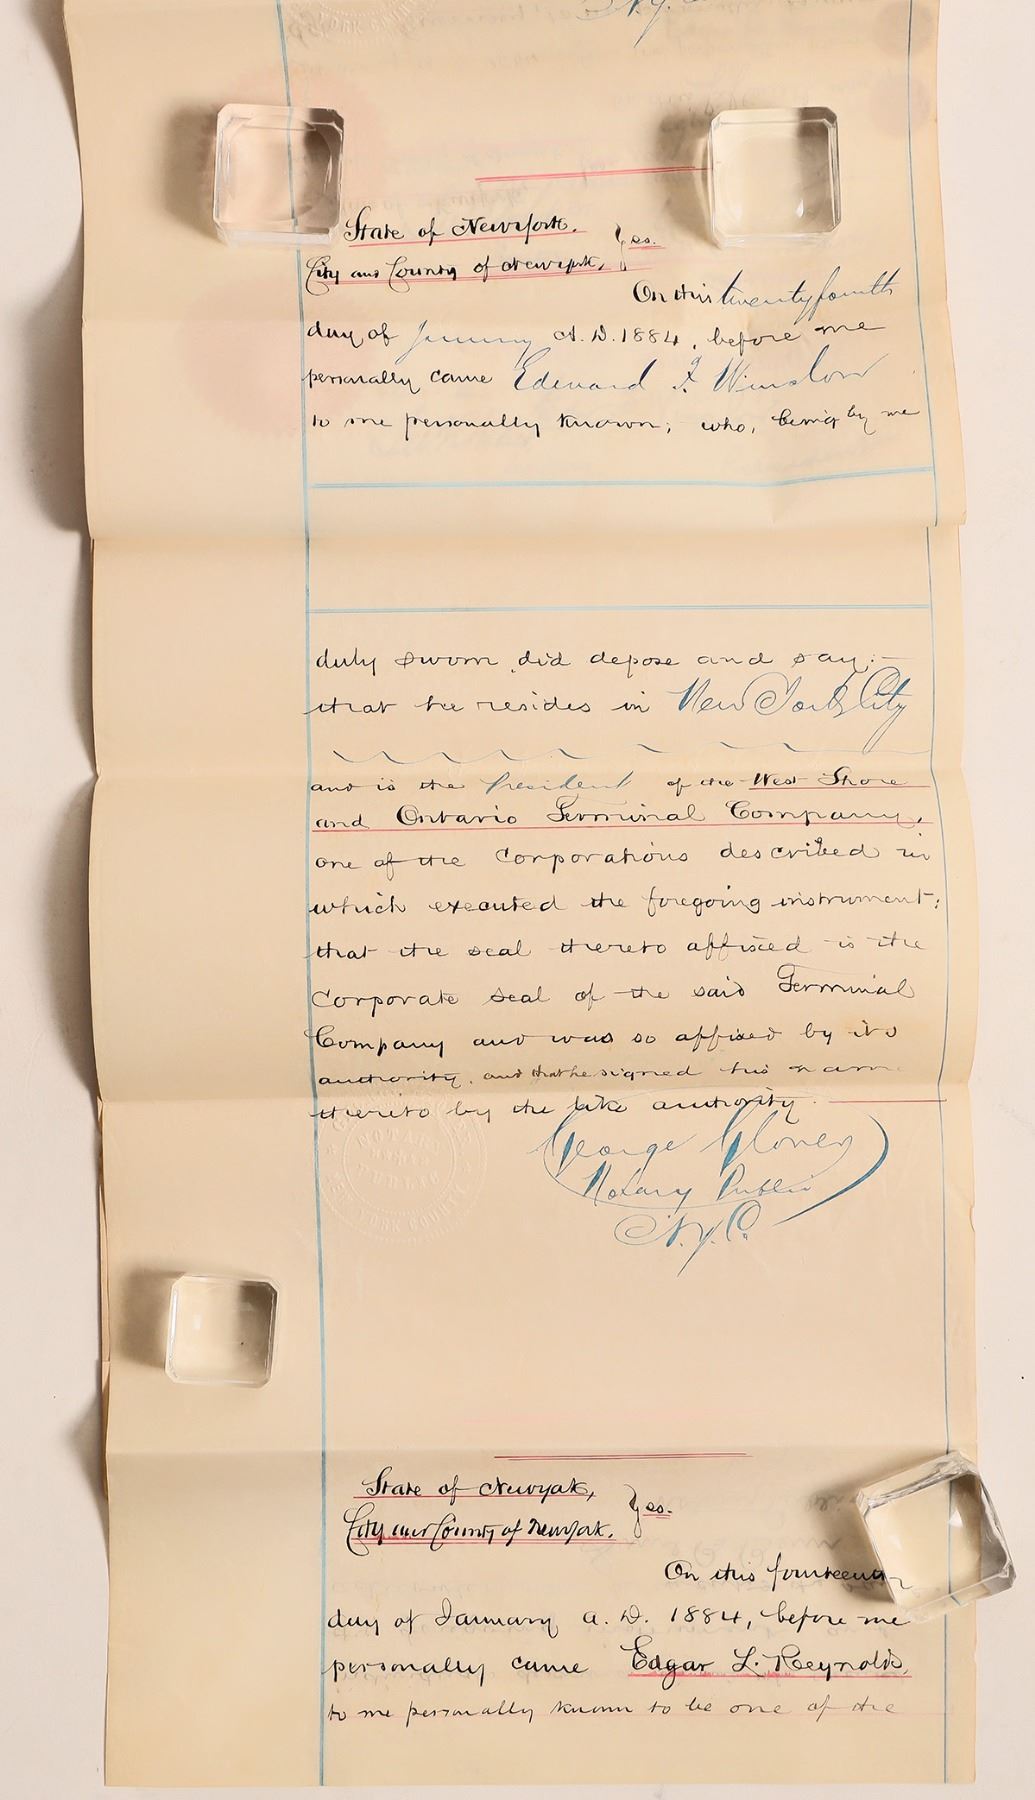 N.Y.
State of New York.
City and County of New York, } ss.
On this twenty fourth
day of January A.D. 1884, before me
personally came Edward F Winslow
to me personally known; who, being by me
duly sworn did depose and say:-
that he resides in New York City
and is the President of the West Shore
and Ontario Terminal Company,
one of the Corporations described in
which executed the foregoing instrument;
that the seal thereto affixed is the
Corporate seal of the said Terminal
Company and was so affixed by its
authority, and that he signed his name
thereto by the like authority.
NOTARY
PUBLIC
YORK COUNTY
George Glover
Notary Public
N.Y.C.
State of New York,
City and County of New York. } ss.
On this fourteenth
day of January A.D. 1884, before me
personally came Edgar L. Reynolds,
to me personally known to be one of the